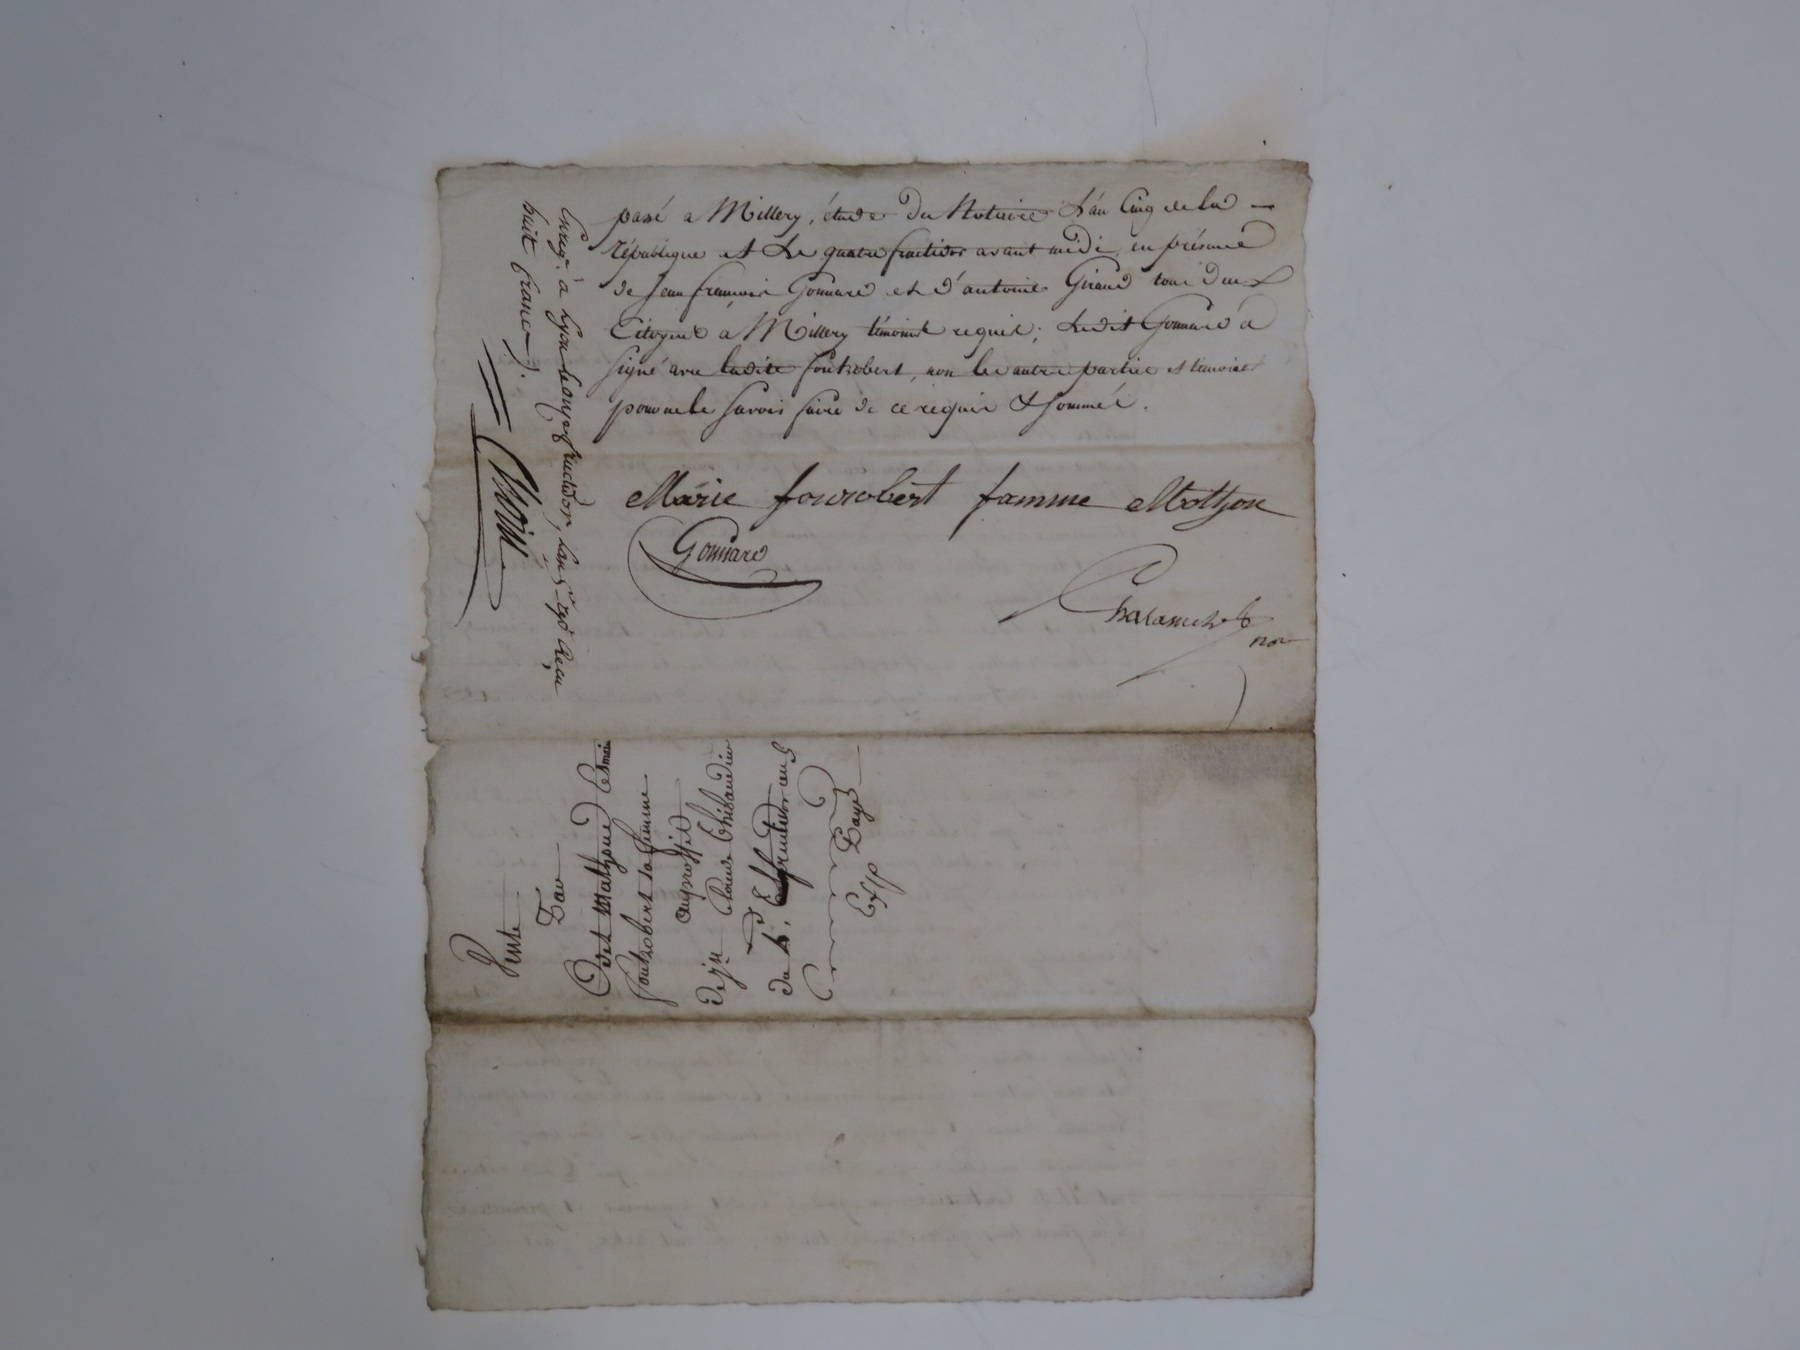 passé a Millery, étude du Notaire L'an Cinq de la
République et Le quatre fructidor avant midi, en présence
de Jean françois Gonnard et d'antoine Giraud tous deux
Citoyens a Millery témoins requis; Ledit Gonnard a
signé avec ladite foutrobert, non les autres parties et témoins
pour ne le savoir faire de ce requis & sommés.
Marie fourobert famme Mothon
Gonnard
nore
Enregé. à Lyon le onze fructidor, l'an 5e. Reçu
huit francs.
Vente
Par
foutrobert sa femme
au proffit
Claude Thibaudier
du 4. fructidor an 5
Exp Payé